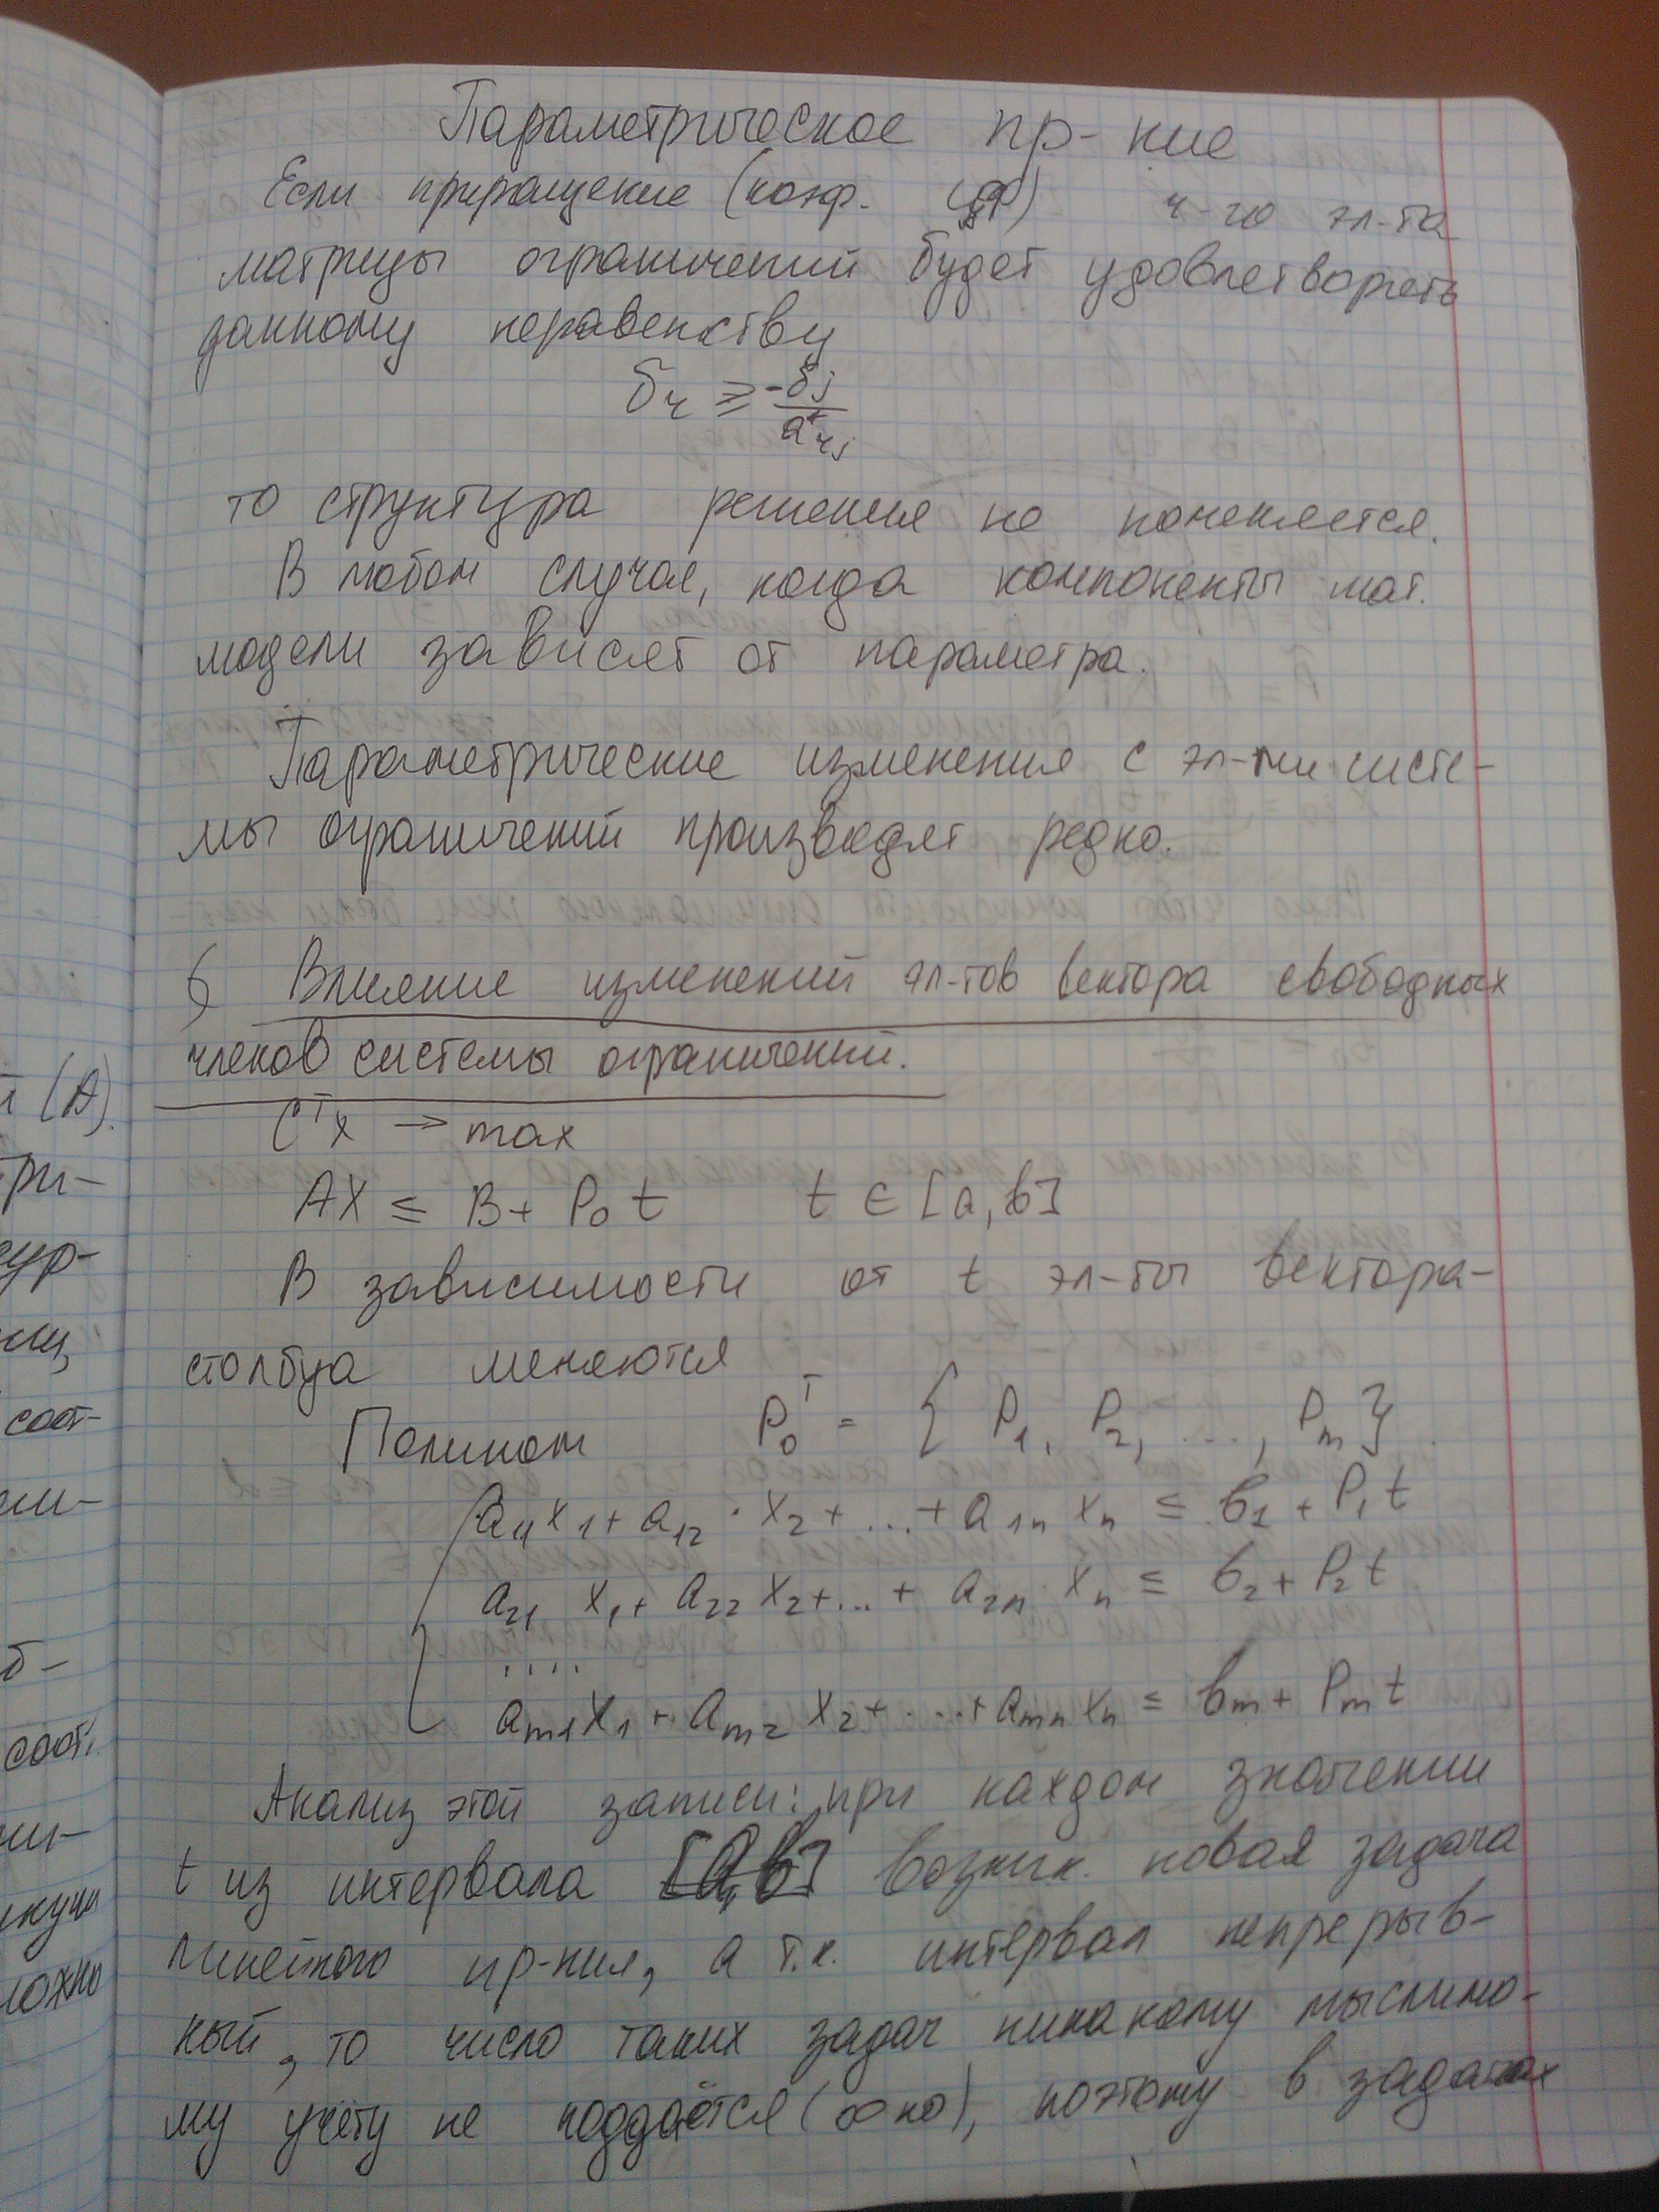 Параметрическое пр-ние
Если приращение (коэф. ЦФ) r-го эл-та
матрицы ограничений будет удовлетворять
данному неравенству
δr ≥ -δj / a*rj
то структура решения не поменяется.
В любом случае, когда компоненты мат.
модели зависят от параметра.
Параметрические изменения с эл-ми систе-
мы ограничений производят редко.
Влияние изменений эл-тов вектора свободных
членов системы ограничений.
C^T x → max
AX ≤ B + P₀ t t ∈ [a, b]
В зависимости от t эл-ты вектора-
столбца меняются
Полином P₀^T = { P₁, P₂, ..., Pm }
a₁₁x₁ + a₁₂ · x₂ + ... + a₁n xn ≤ b₁ + P₁t
a₂₁ x₁ + a₂₂ x₂ + ... + a₂n xn ≤ b₂ + P₂t
....
am₁x₁ + am₂ x₂ + ... + amn xn ≤ bm + Pm t
Анализ этой записи: при каждом значении
t из интервала [a,b] возник. новая задача
линейного пр-ния, а т.к. интервал непрерыв-
ный, то число таких задач никакому мыслимо-
му учёту не поддаётся (∞но), поэтому в задачах
й (A).
три-
сур-
соот-
соот.